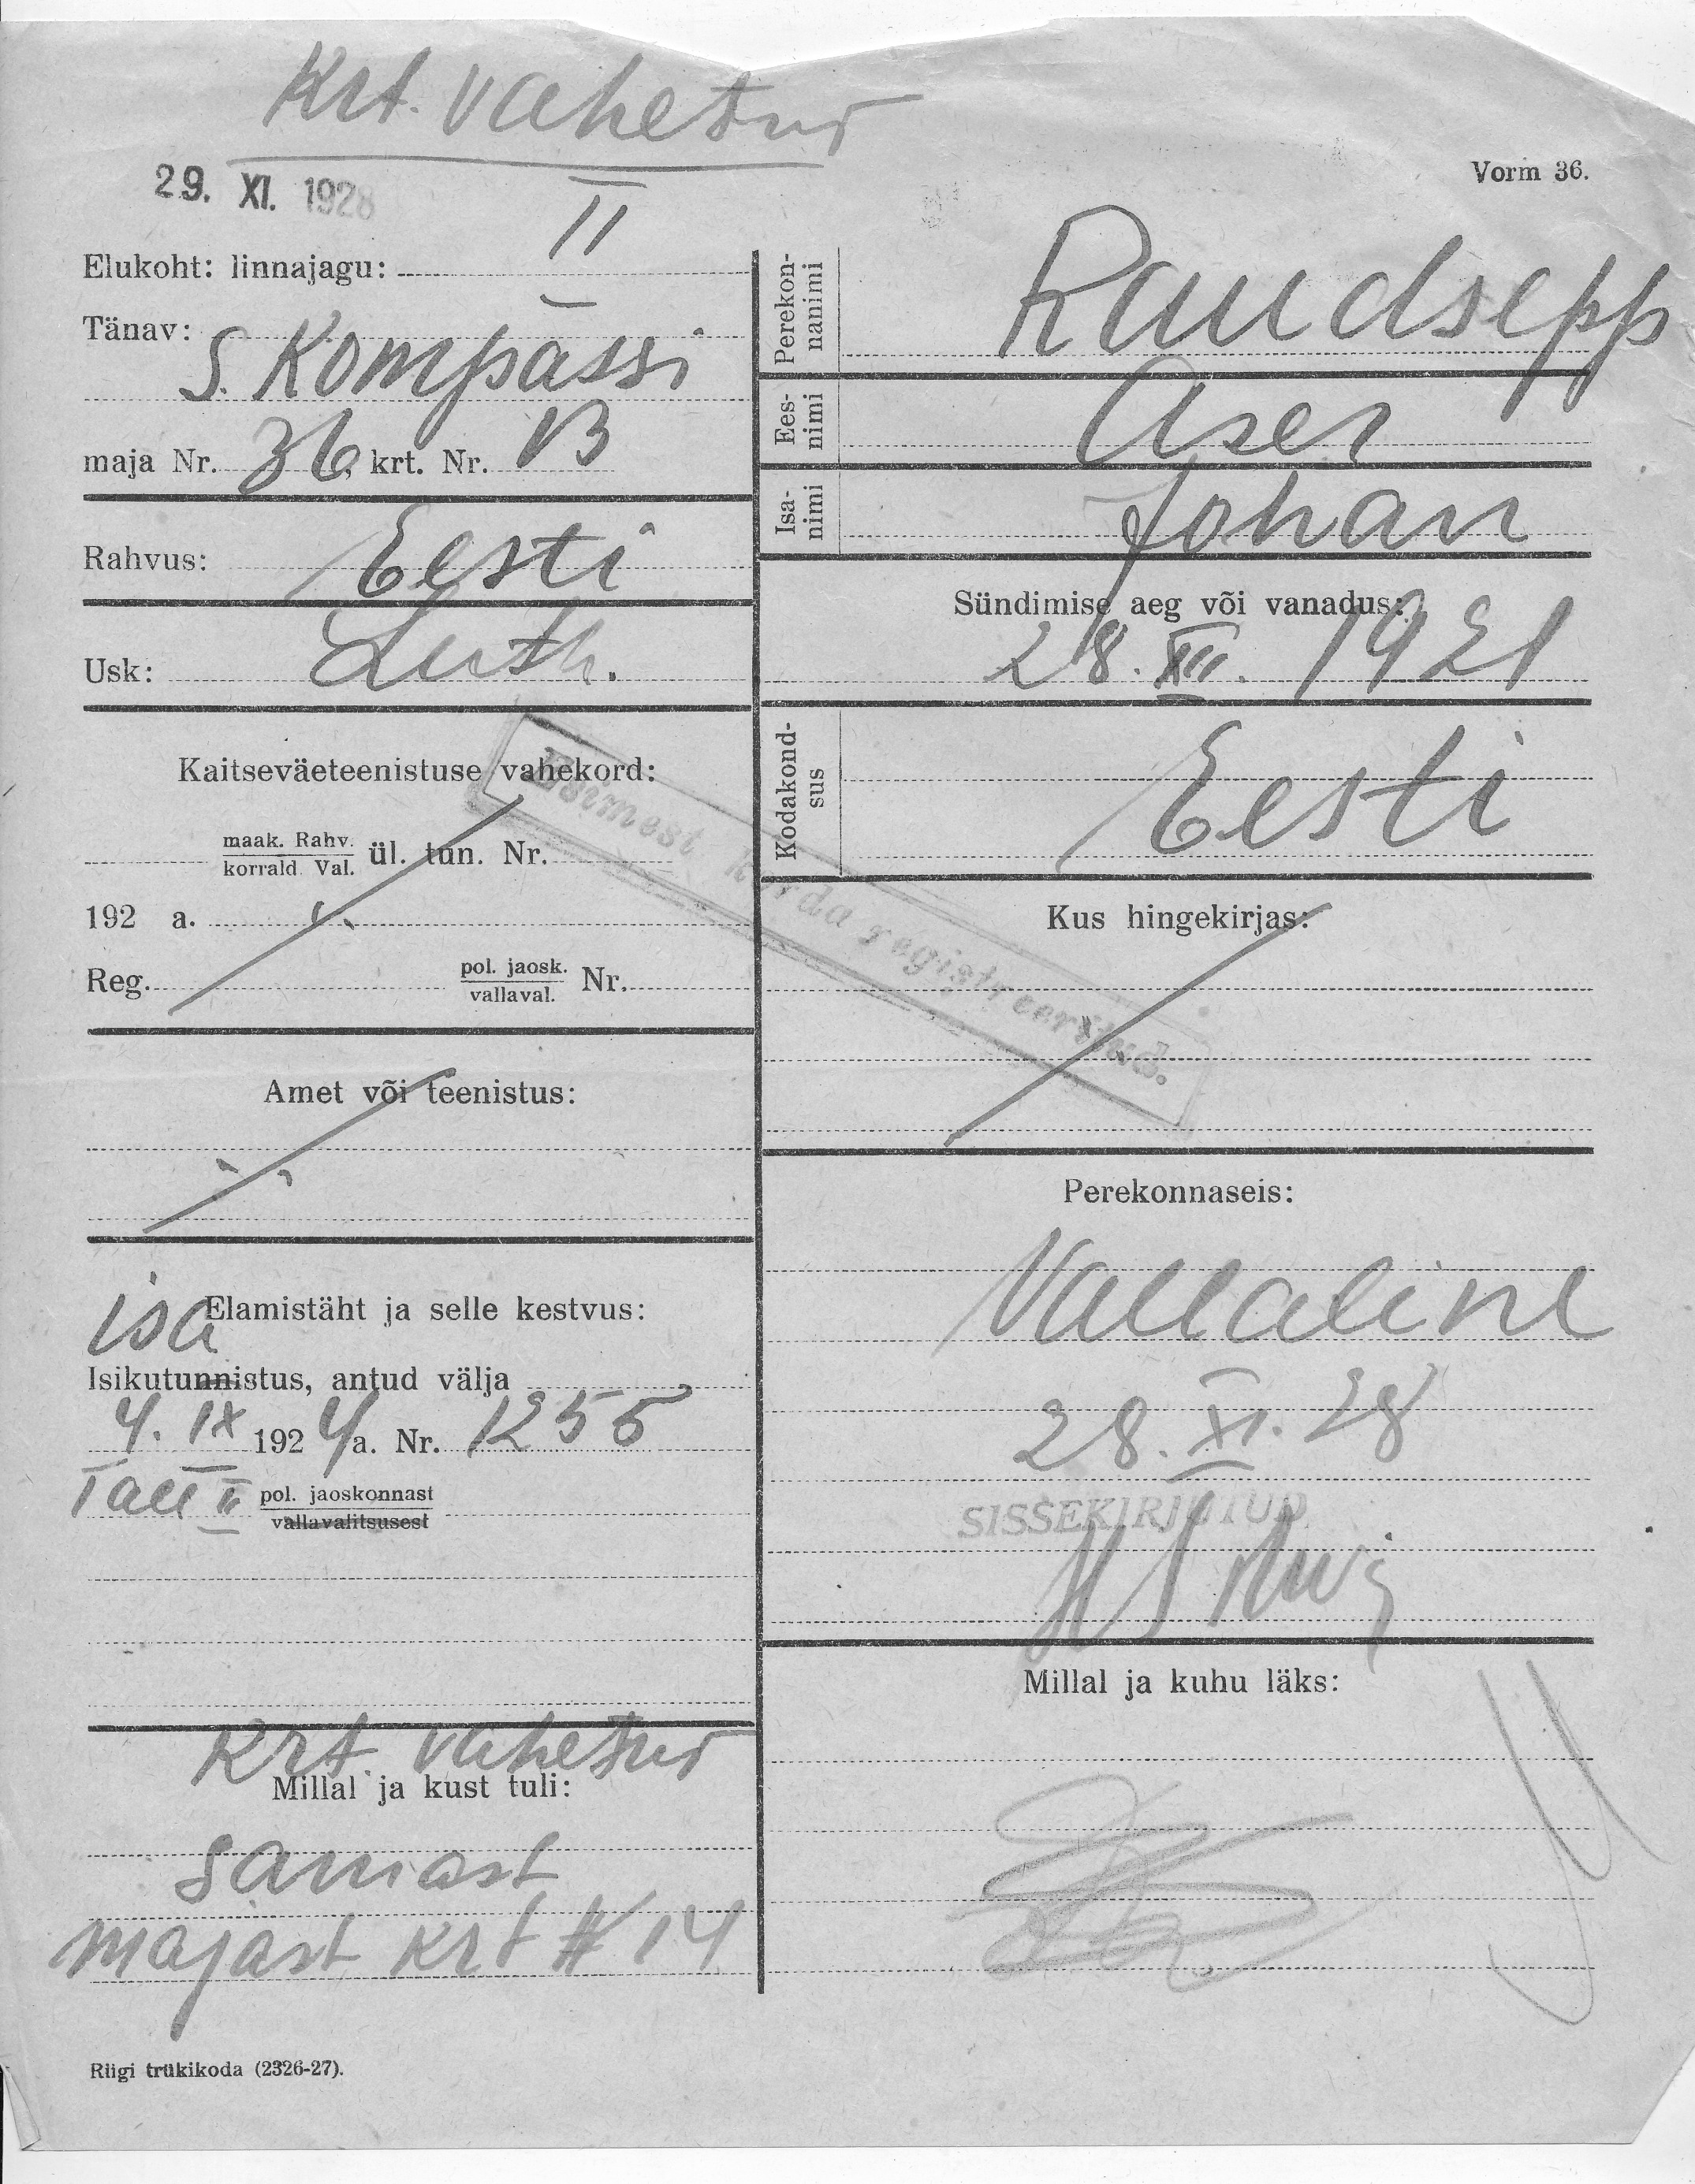 Krt. vahetus
29. XI. 1928
Vorm 36.
Elukoht: linnajagu: II
Tänav: S. Kompassi
maja Nr. 36, krt. Nr. 13
Rahvus: Eesti
Usk: Luth.
Kaitseväeteenistuse vahekord:
maak. Rahv.
korrald. Val. ül. tun. Nr.
192 a.
Reg. pol. jaosk.
vallaval. Nr.
Amet või teenistus:
isa
Elamistäht ja selle kestvus:
Isikutunnistus, antud välja
4. IX 1924 a. Nr. 1255
Tall II pol. jaoskonnast
vallavalitsusest
Krt. vahetus
Millal ja kust tuli:
samast
majast krt # 14
Riigi trükikoda (2326-27).
Perekon-
nanimi
Raudsepp
Ees-
nimi
Aser
Isa-
nimi
Johan
Sündimise aeg või vanadus:
28. XII. 1921
Kodakond-
sus
Eesti
Esimest korda registreeritud.
Kus hingekirjas:
Perekonnaseis:
Vallaline
28. XI. 28
SISSEKIRJUTUD
Millal ja kuhu läks: